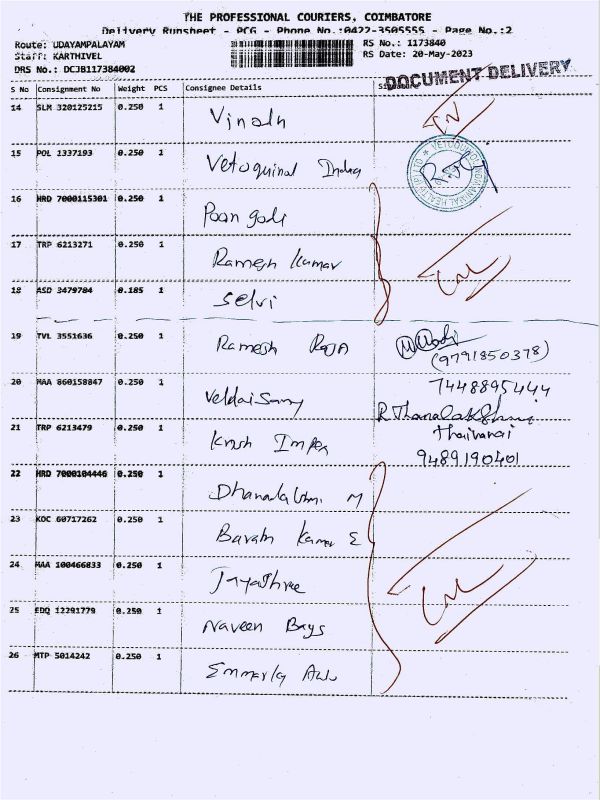 THE PROFESSIONAL COURIERS, COIMBATORE
Delivery Runsheet - PCG - Phone No.:0422-3505555 - Page No.:2
Route: UDAYAMPALAYAM RS No.: 1173840
Staff: KARTHIVEL RS Date: 20-May-2023
DRS No.: DCJB117384002
DOCUMENT DELIVERY
S No Consignment No Weight PCS Consignee Details
14 SLM 320125215 0.250 1 Vinoth
15 POL 1337193 0.250 1 Vetoquinol India
16 HRD 7000115301 0.250 1 Poongodi
17 TRP 6213271 0.250 1 Ramesh Kumar
18 ASD 3479784 0.185 1 Selvi
19 TVL 3551636 0.250 1 Ramesh Raja
(9791850378)
20 MAA 860158847 0.250 1 Veldaisamy 7448895444
R Thanalakshmi
21 TRP 6213479 0.250 1 Krish Impex
9489190401
22 HRD 7000104446 0.250 1 Dhanalakshmi M
23 KOC 60717262 0.250 1 Barath Kumar E
24 MAA 100466833 0.250 1 Jayashree
25 EDQ 12291779 0.250 1 Naveen Bags
26 MTP 5014242 0.250 1